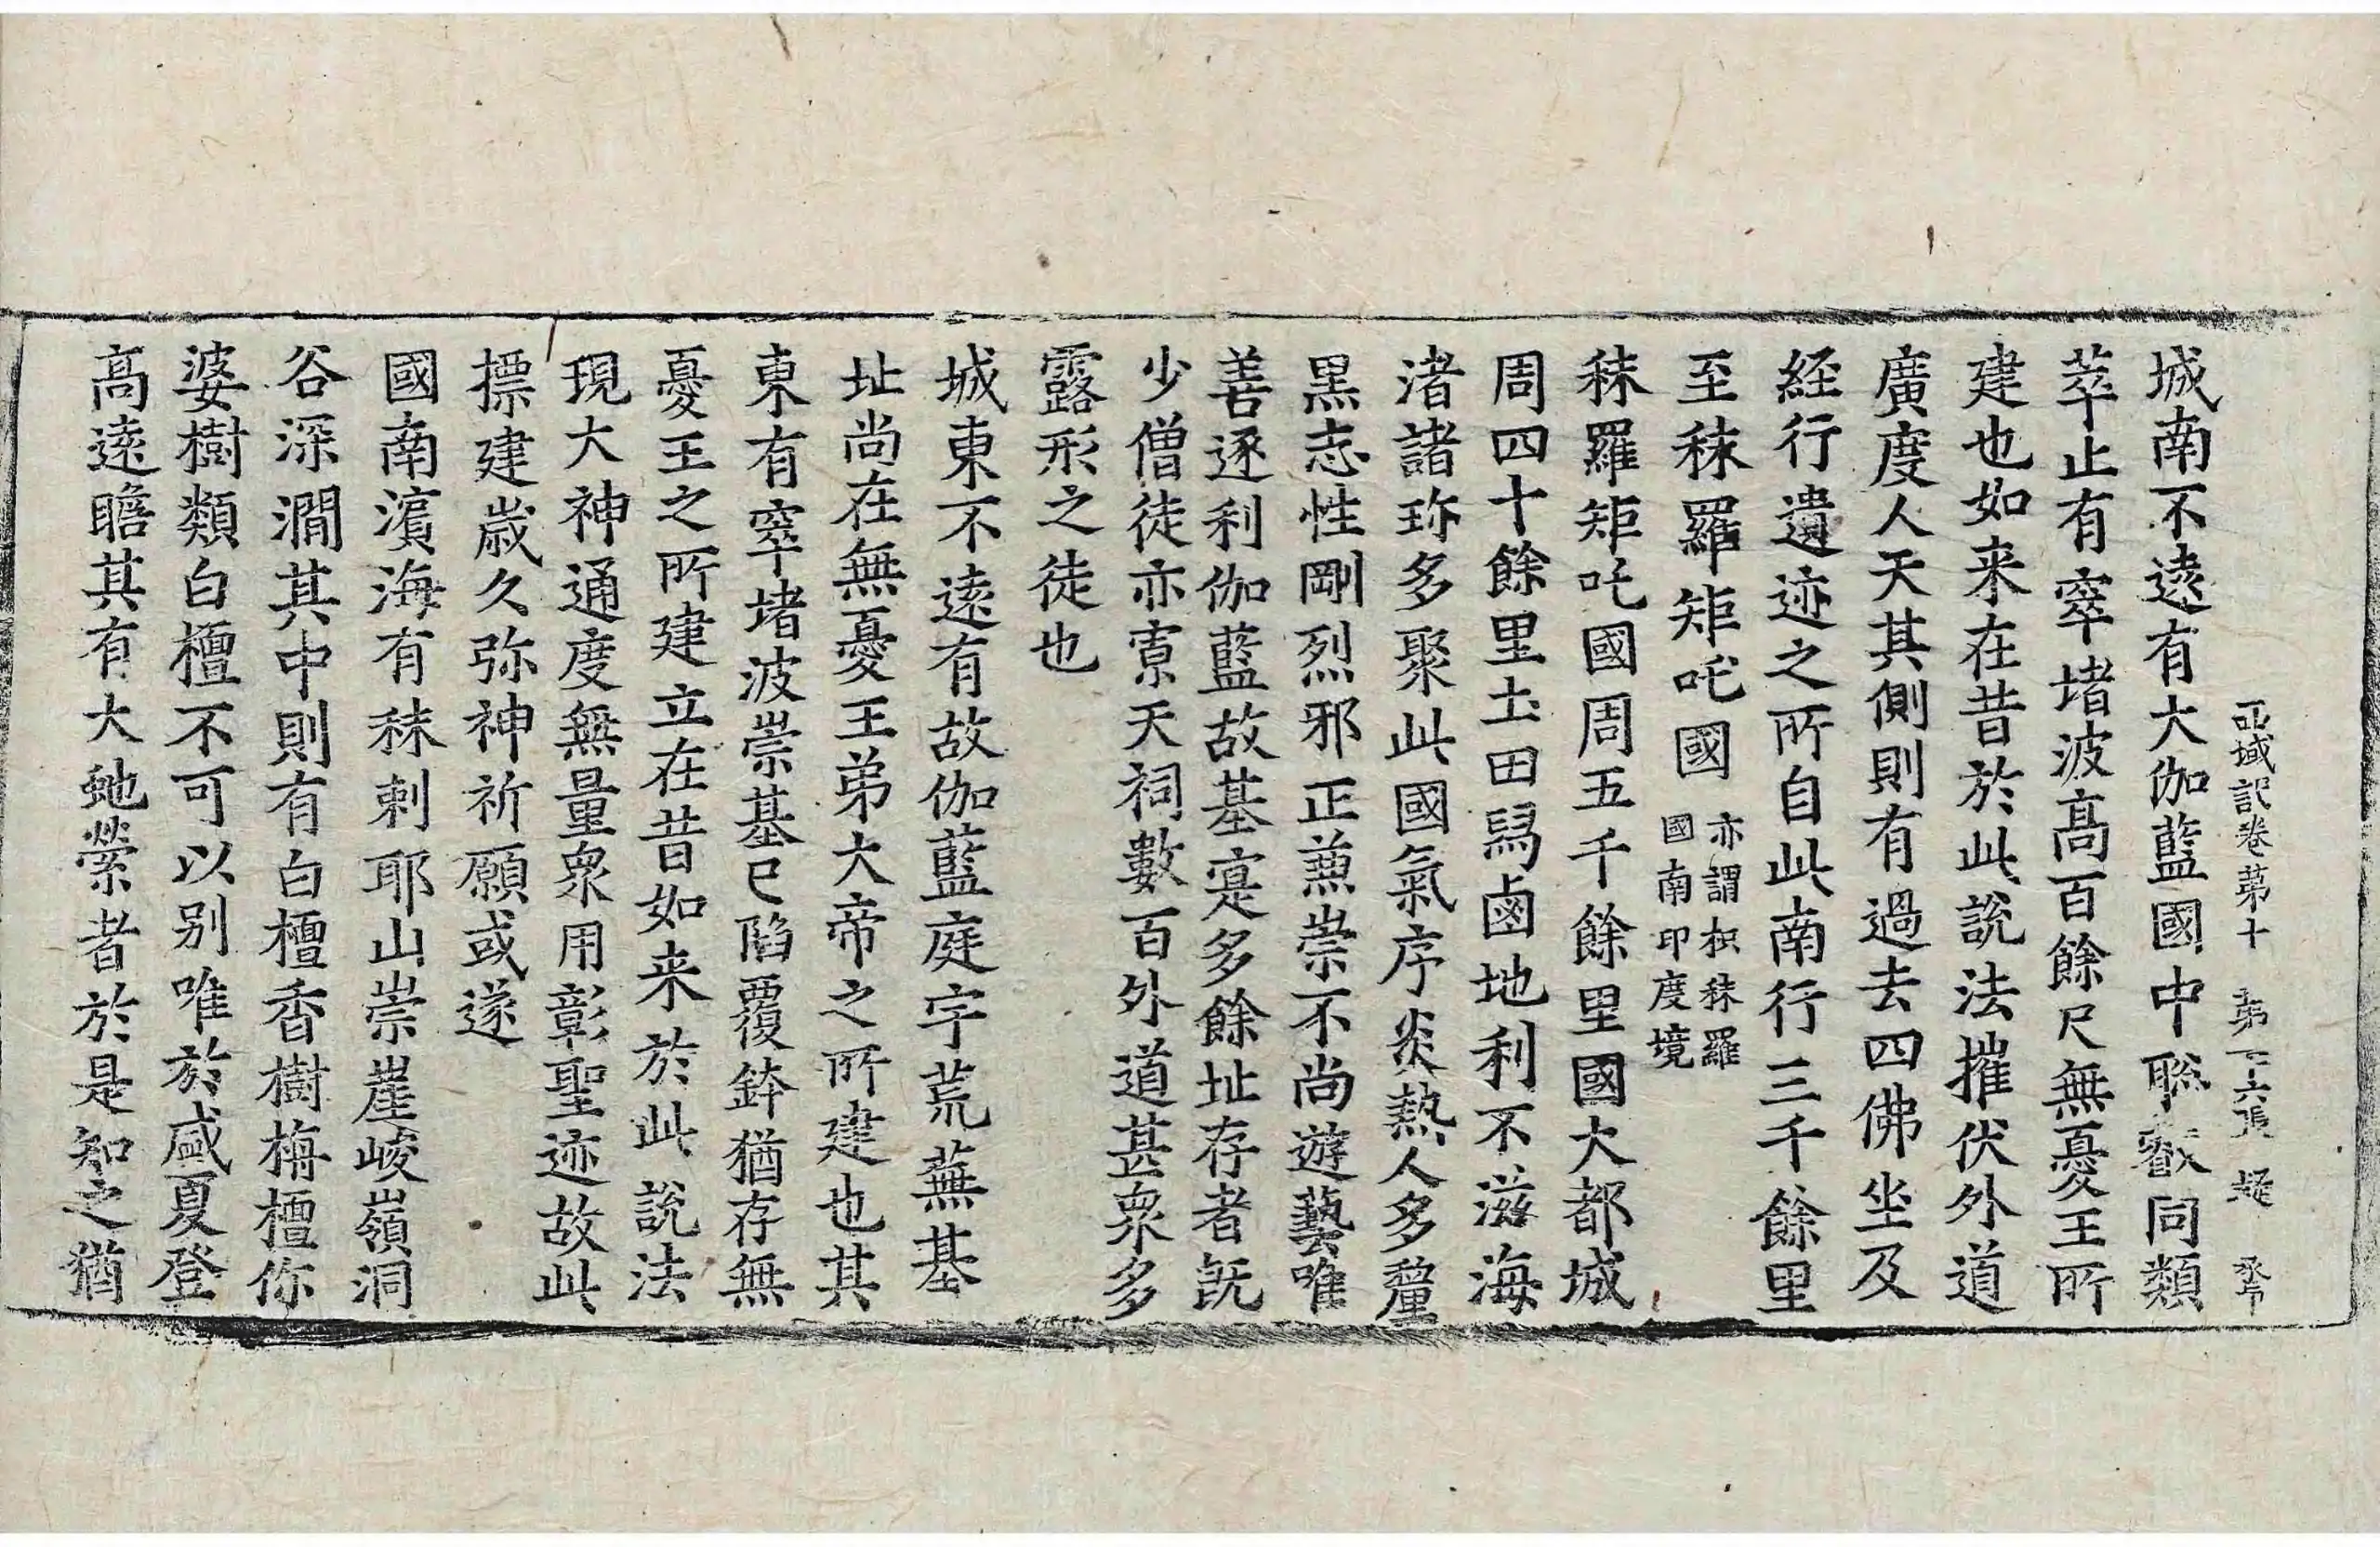 西域記卷第十　第二十六張　疑
城南不遠有大伽藍國中聡叡同類
萃止有窣堵波高百餘尺無憂王所
建也如来在昔於此說法摧伏外道
廣度人天其側則有過去四佛坐及
経行遺迹之所自此南行三千餘里
至秣羅矩吒國亦謂枳秣羅國南印度境
秣羅矩吒國周五千餘里國大都城
周四十餘里土田舄鹵地利不滋海
渚諸珎多聚此國氣序炎熱人多釐
黒志性剛烈邪正兼崇不尚遊藝唯
善逐利伽藍故基寔多餘址存者旣
少僧徒亦寡天祠數百外道甚衆多
露形之徒也
城東不遠有故伽藍庭宇荒蕪基
址尚在無憂王弟大帝之所建也其
東有窣堵波崇基已陷覆鉢猶存無
憂王之所建立在昔如来於此說法
現大神通度無量衆用彰聖迹故此
摽建歳久弥神祈願或遂
國南濵海有秣剌耶山崇崖峻嶺洞
谷深澗其中則有白檀香樹栴檀你
婆樹類白檀不可以别唯於盛夏登
高遠瞻其有大虵縈者於是知之猶